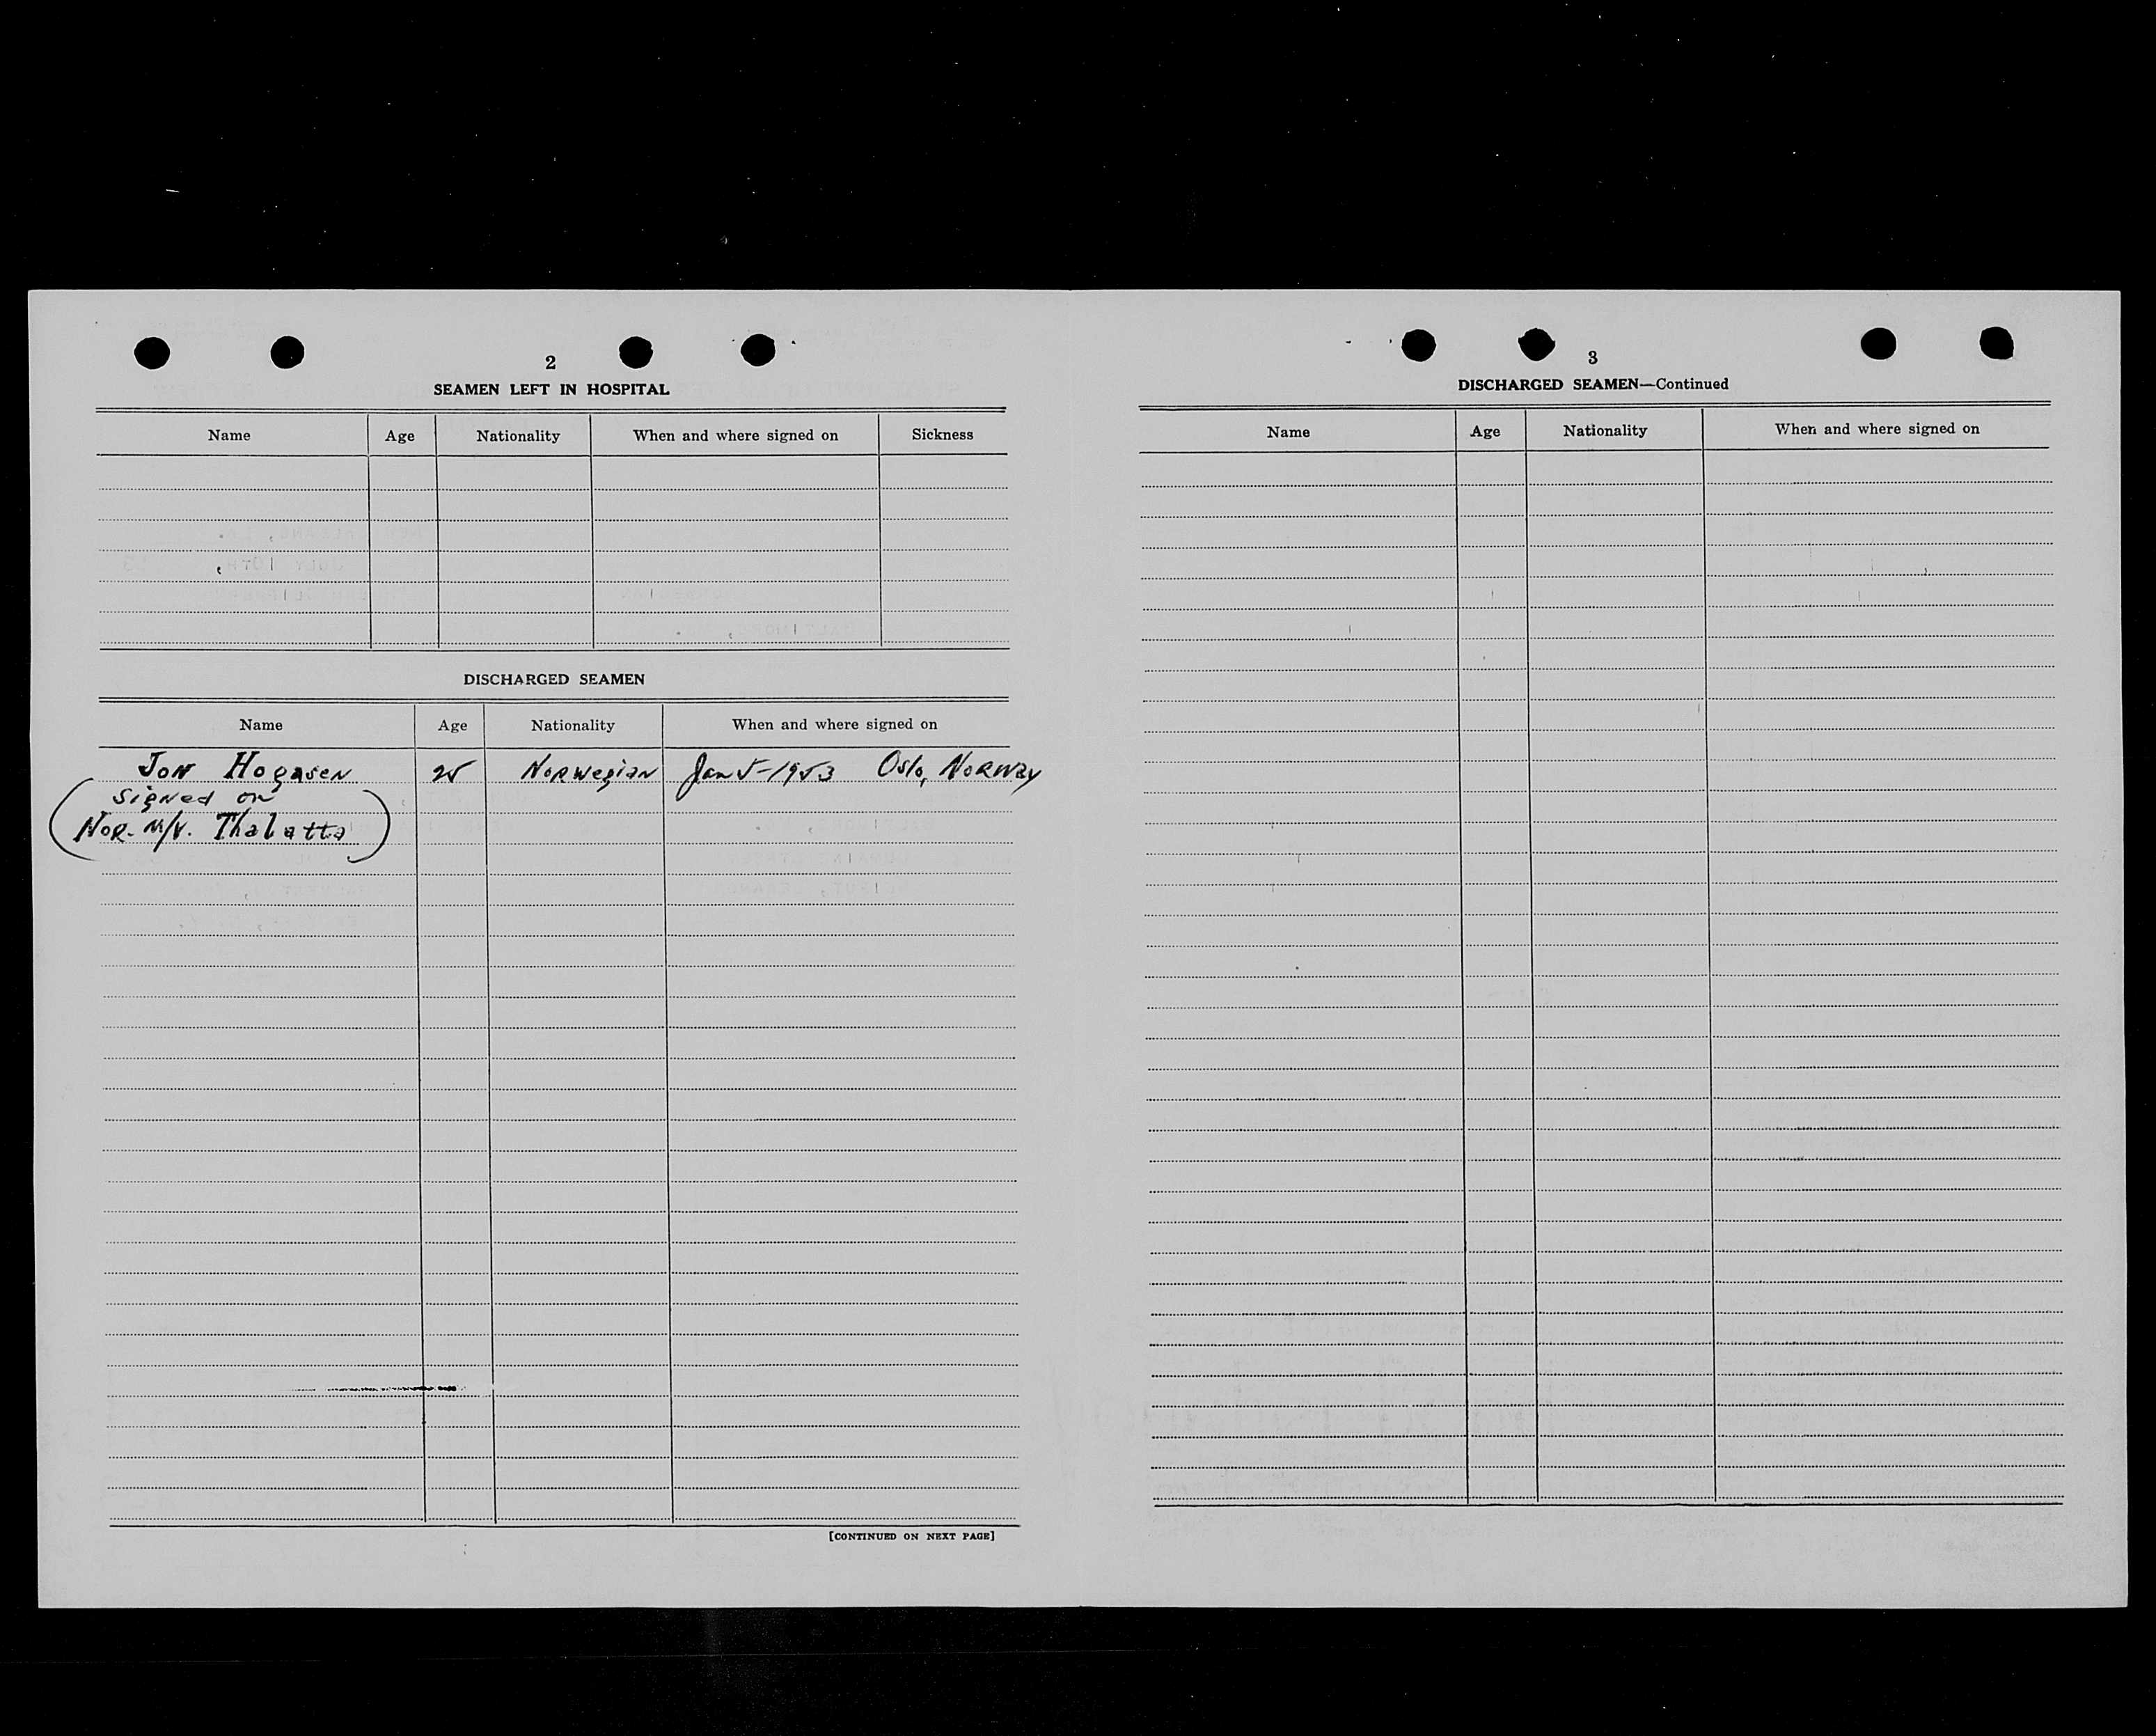 2
SEAMEN LEFT IN HOSPITAL
Name Age Nationality When and where signed on Sickness
DISCHARGED SEAMEN
Name Age Nationality When and where signed on
Jon Hogasen 25 Norwegian Jan 5-1953 Oslo, Norway
(signed on
Nor. M/V. Thalatta)
[CONTINUED ON NEXT PAGE]
3
DISCHARGED SEAMEN—Continued
Name Age Nationality When and where signed on